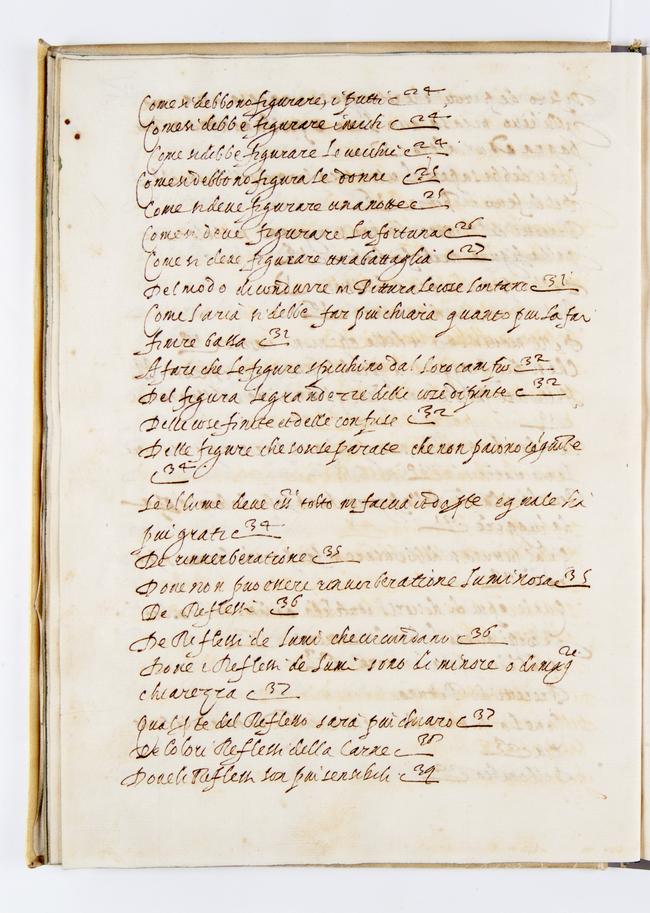 Come si debbono figurare, i putti c 24
Come si debbe figurare i vechi c 24
Come si debbe figurare le vecchie c 24
Come si debbono figura le donne c 25
Come si deve figurare una notte c 25
Come si deve figurare la fortuna c 26
Come si deve figurare una battaglia c 27
Del modo di condurre in Pittura le cose lontane c 31
Come l'aria si debbe far piu chiara quanto piu la fai
finire bassa c 31
A fare che le figure spicchino dal loro campo c 32
Del figura le grandezze delle cose dipinte c 32
Delle cose finite et delle confuse c 32
Delle figure che son separate che non paiono cogiute
c 34
Se il lume deve tolto in faccia o da parte e quale sia
piu gratie c 34
De rinverberatione c 35
Dove non puo essere rinverberatione luminosa c 35
De Reflessi c 36
De Reflessi de lumi che circundano c 36
Dove i Reflessi de lumi sono di minore o di magre
chiarezza c 37
Qual pte del Reflesso sara piu chiaro c 37
De Colori Reflessi della Carne c 38
Dove li Reflessi son piu sensibili c 39